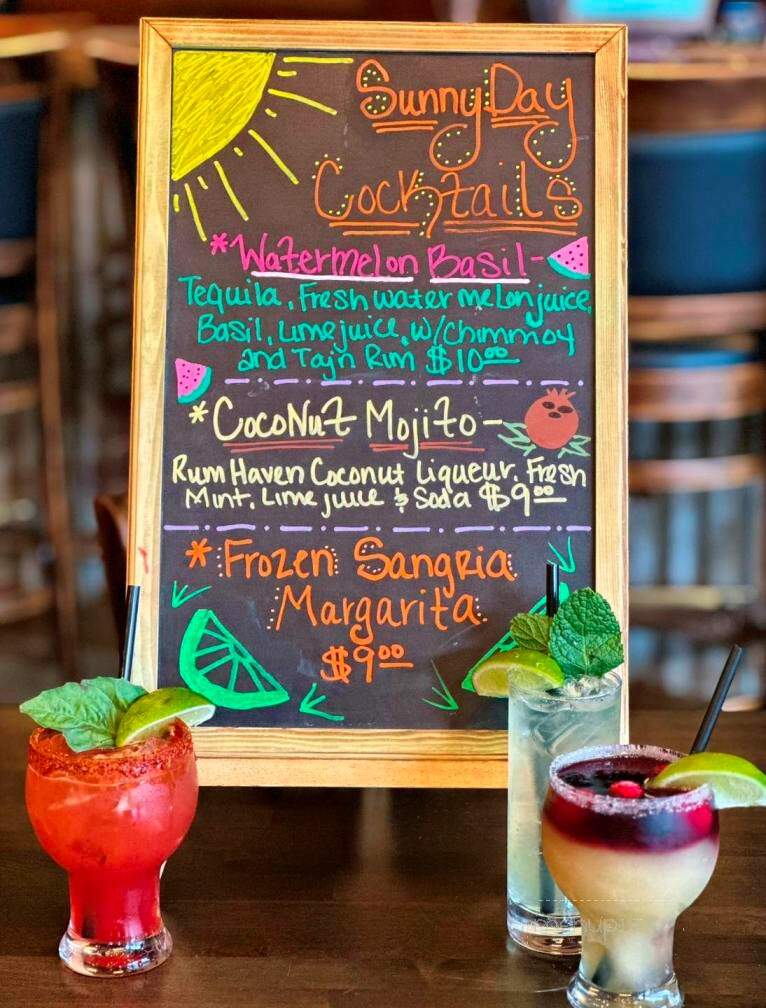 Sunny Day
Cocktails
*Watermelon Basil-
Tequila, Fresh watermelon juice,
Basil, Lime juice, w/chimmoy
and Tajn Rim $10.00
*CocoNut Mojito-
Rum Haven Coconut Liqueur, Fresh
Mint, Lime juice & Soda $9.00
*Frozen Sangria
Margarita
$9.00